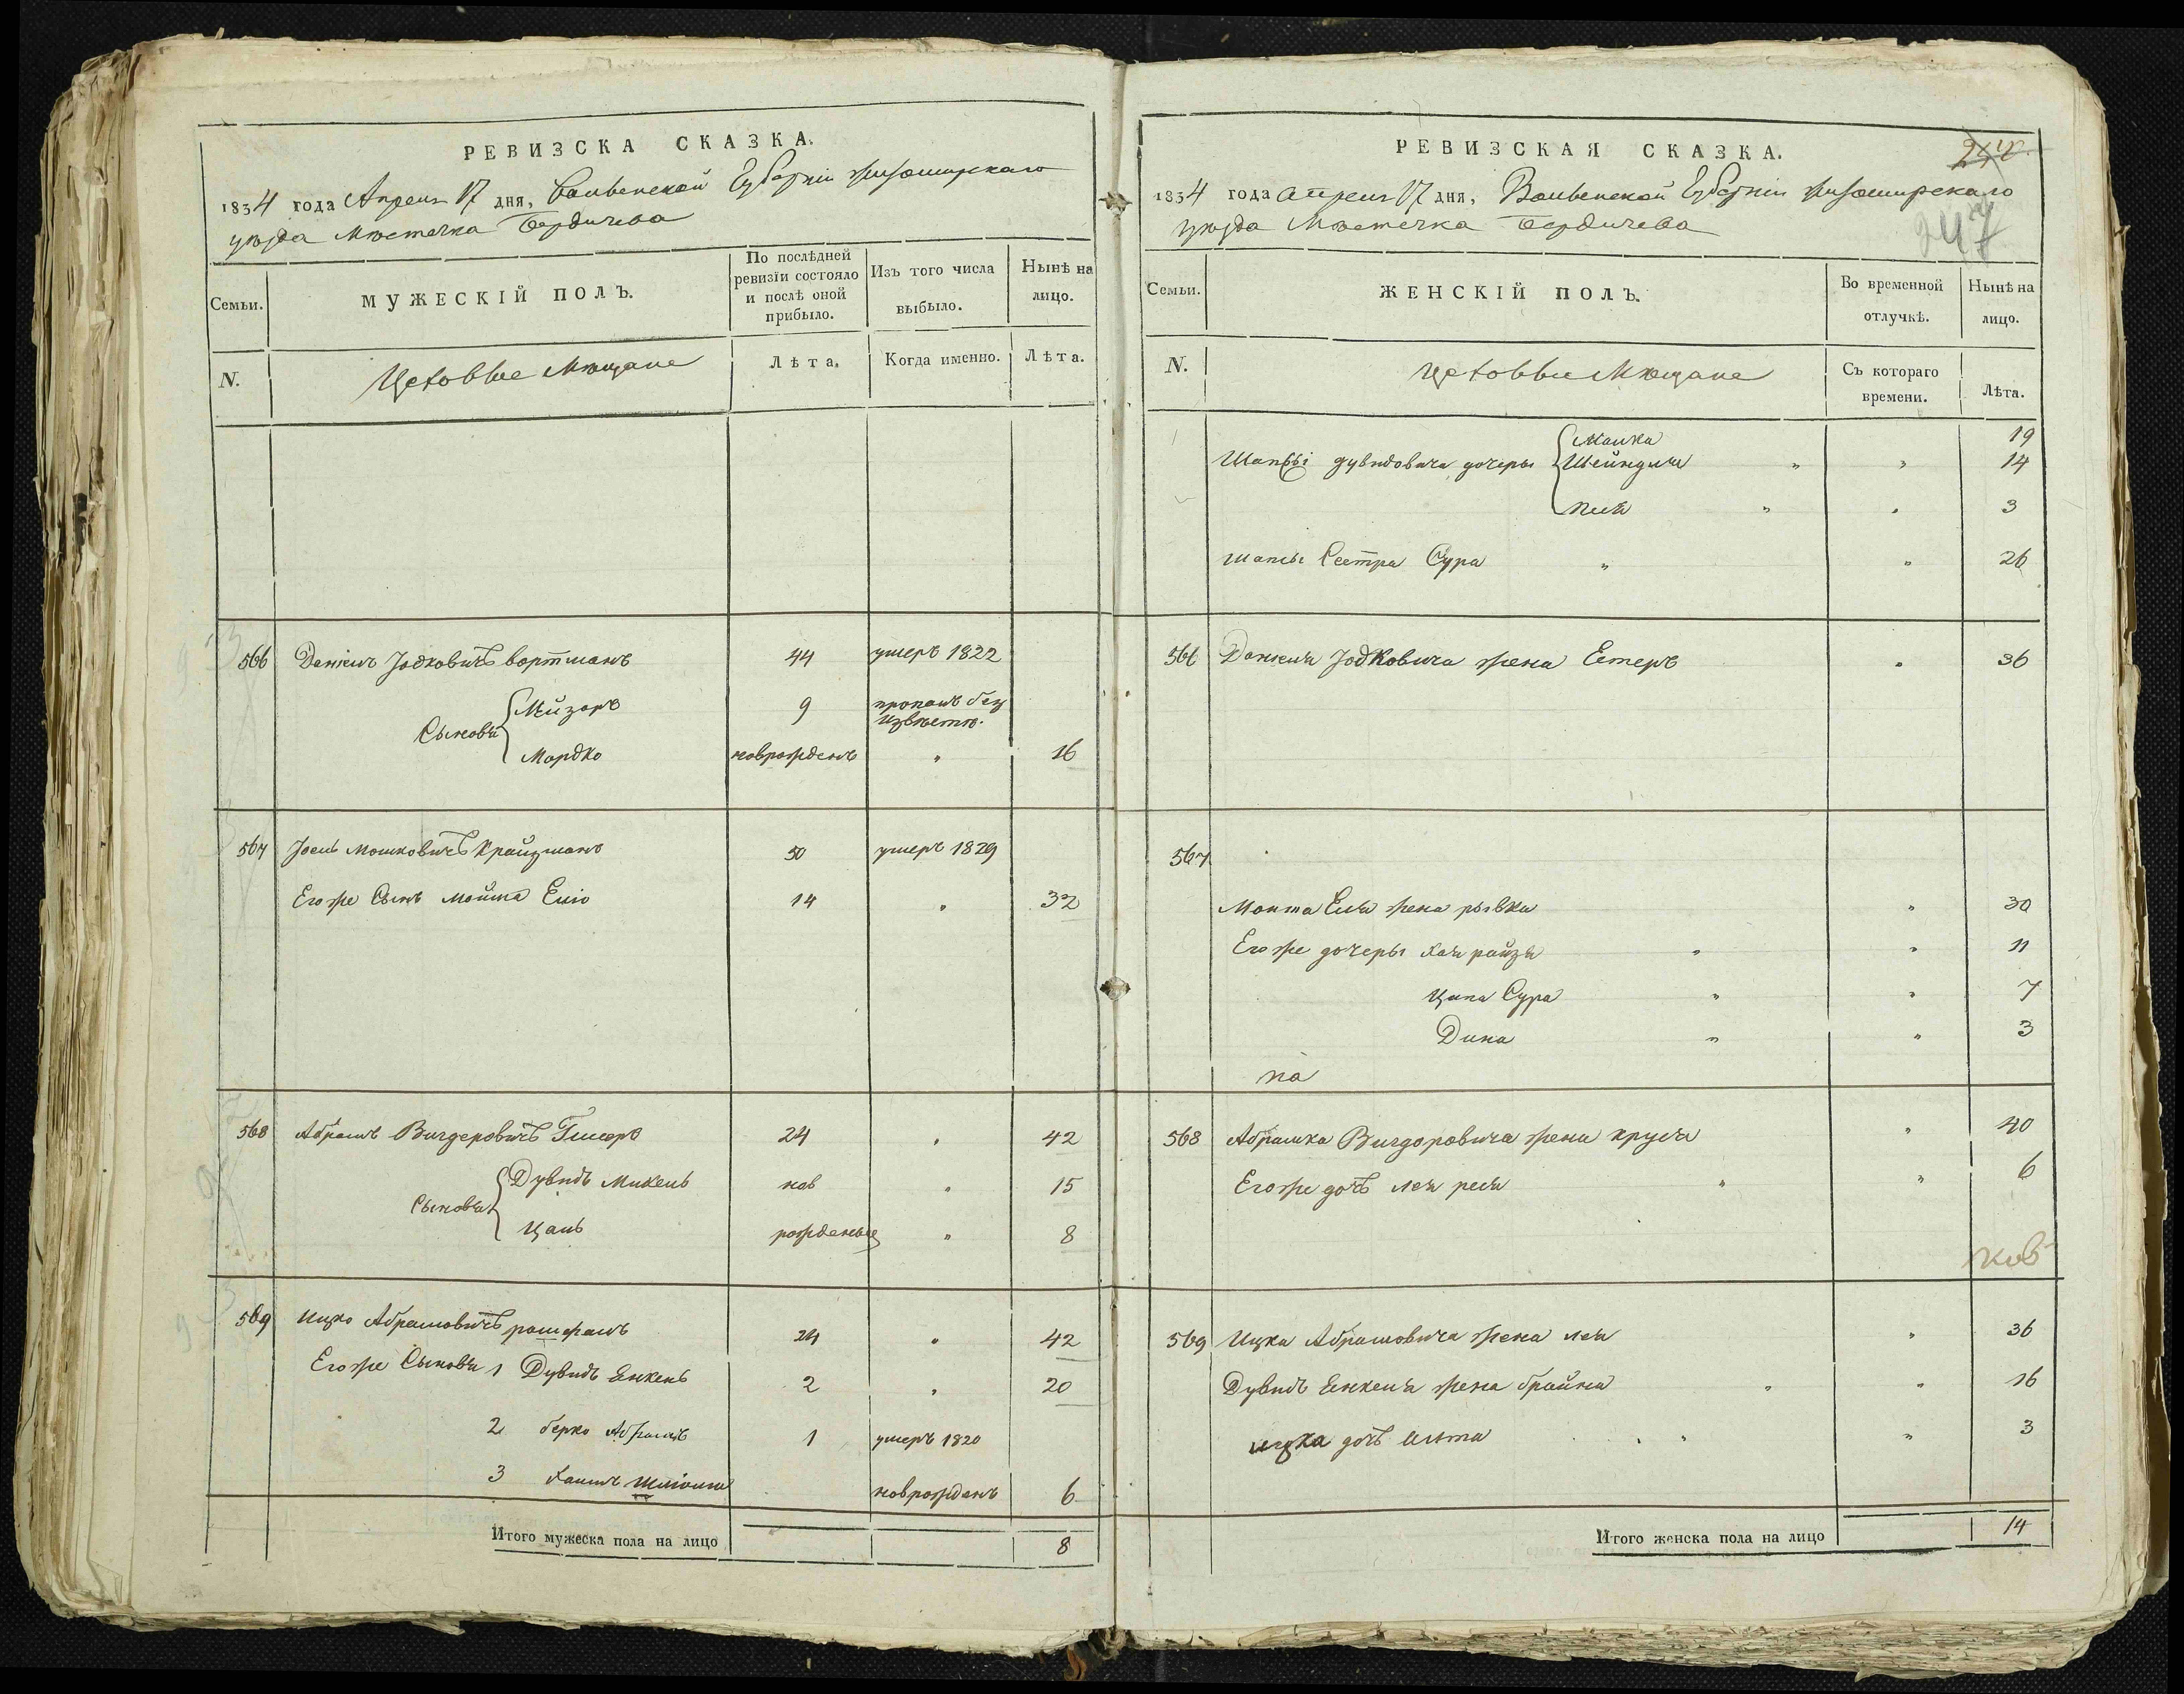 РЕВИЗСКА СКАЗКА.
1834 года Апреля 17 дня, Волынской Губерніи Житомирскаго
уѣзда Мѣстечка Бердичева
Семьи.
МУЖЕСКІЙ ПОЛЪ.
По послѣдней
ревизіи состояло
и послѣ оной
прибыло.
Изъ того числа
выбыло.
Нынѣ на
лицо.
N.
Цеховые Мѣщане
Лѣта.
Когда именно.
Лѣта.
566 Даніилъ Іодковичъ вортманъ 44 умеръ 1822
Сыновья
Мейзоръ 9 пропалъ без
извѣстн.
Мордко новрожденъ " 16
567 Іосъ Мошковичъ Крайцманъ 50 умеръ 1829
Его же Сынъ Мойша Еліо 14 " 32
568 Абрамъ Вигдеровичъ 24 " 42
Сыновья
Дувидъ Михель нов " 15
Цаль рожденые " 8
569 Ицко Абрамовичъ 24 " 42
Его же Сыновья 1 Дувидъ Енкель 2 " 20
2 берко Абрамъ 1 умеръ 1820
3 Хаимъ Шліома новрожденъ 6
Итого мужеска пола на лицо 8
РЕВИЗСКАЯ СКАЗКА.
247
1834 года апреля 17 дня, Волынской Губерніи Житомирскаго
уѣзда Мѣстечка Бердичева
Семьи.
ЖЕНСКІЙ ПОЛЪ.
Во временной
отлучкѣ.
Нынѣ на
лицо.
N.
Цеховые Мѣщане
Съ котораго
времени.
Лѣта.
Малка 19
Шапсы дувидовича дочеры Шейндля " " 14
" " 3
шапсы Сестра Сура " " 26
566 Даніила Іодковича жена Естеръ " 36
567
Мойша Еліи жена рывка " 30
Его же дочеры хая райзя " " 11
Ципа Сура " " 7
Дина " " 3
на
568 Абрамка Вигдоровича жена круся " 40
Его же дочь лея рися " " 6
569 Ицка Абрамовича жена лея " 36
Дувидъ Енкеля жена брайна " " 16
ицка дочь " " 3
Итого женска пола на лицо 14